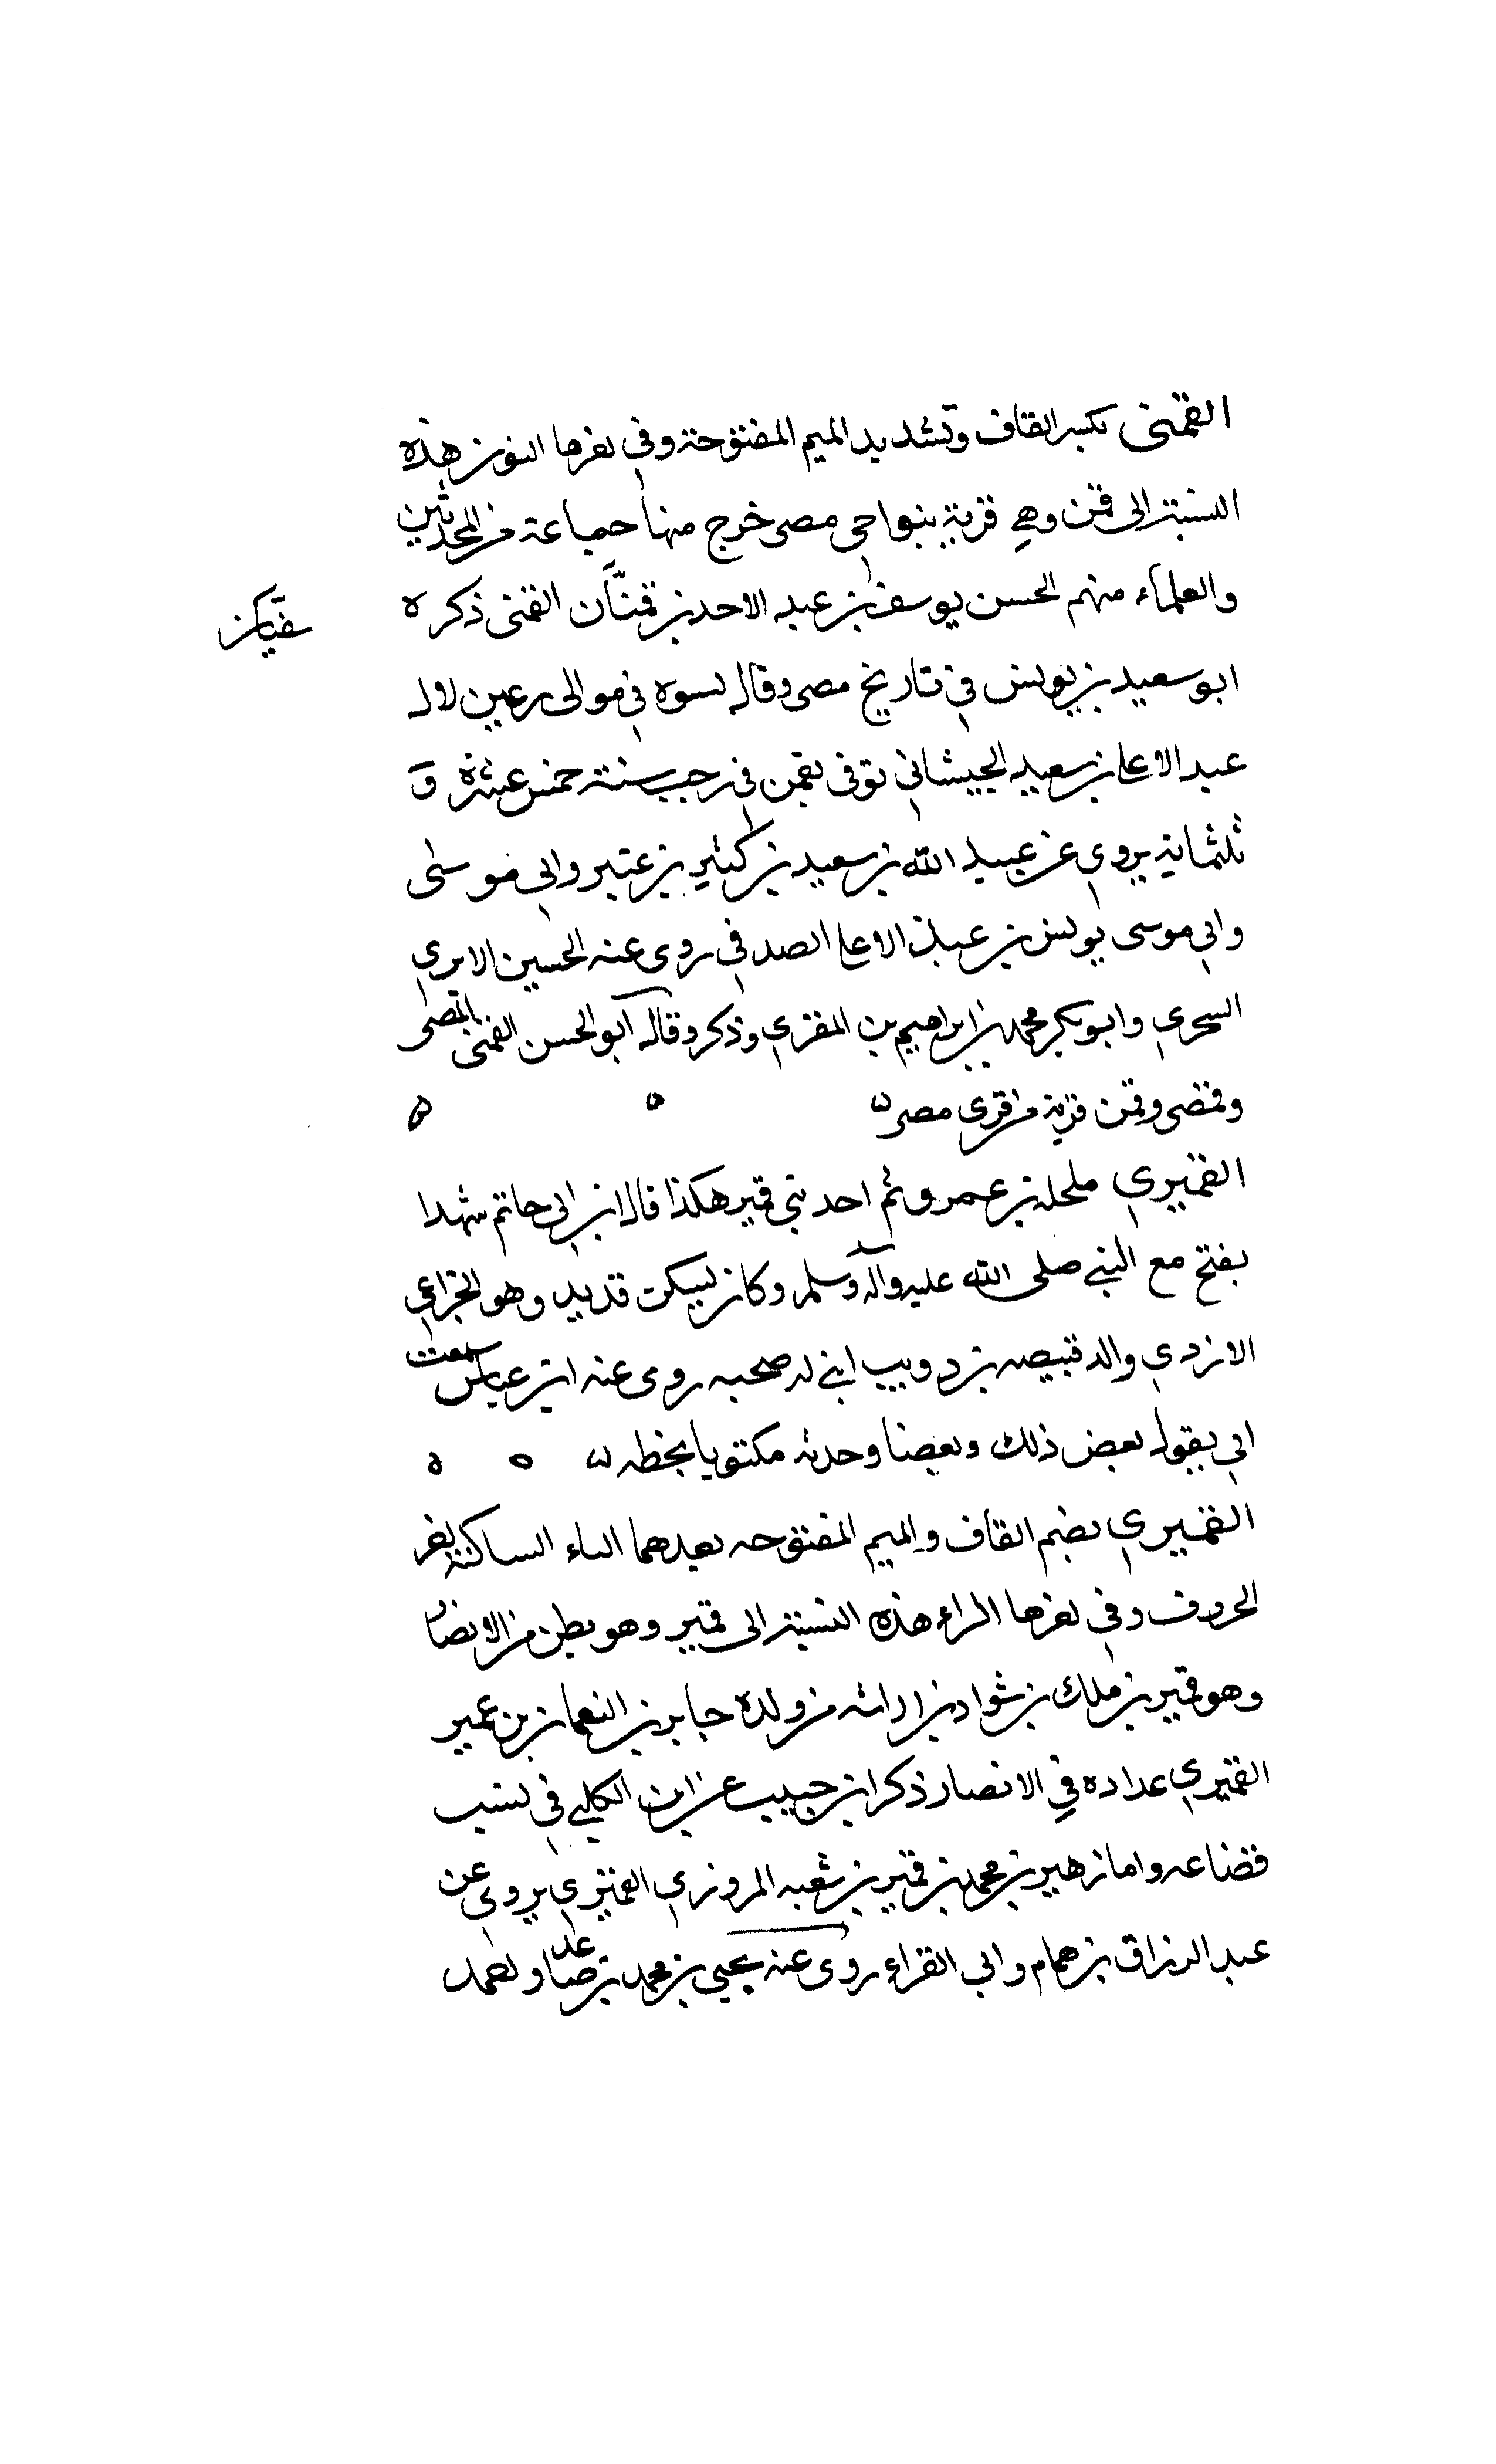 القمنى بكسر القاف وتشديد الميم المفتوحة وفي اخرها النون هذه
النسبة الى قمن وهي قرية بنواحى مصر خرج منها جماعة من المحدثين
والعلماء منهم الحسن يوسف بن عبد الاحد بن قمنان القمنى ذكره
ابو سعيد بن يونس في تاريخ مصر وقال نسوه في موالى رعين لال
عبد الاعلى بن سعيد الجيشاني توفى بقمن في رجب سنة خمس عشرة و
ثلثماية يروي عن عبيد الله بن سعيد بن كثير بن عتير وابي موسى
وابي موسى يونس بن عبد الاعلى الصدفي روى عنه الحسين الابري
السحري وابو بكر محمد بن ابراهيم بن المقري وذكر وقال ابو الحسن القمنى
وقمن قرية من قرى مصر
القميري ملحلة بن عمرو ثم احد بني قمير هكذا قال ابن ابي حاتم شهدا
بفتح مع النبي صلى الله عليه وآله وسلم وكان يسكن قديد وهو الخزاعي
الازدي والد قبيصه بن دويب ابني له صحبه روى عنه ابن عباس سمعت
ابي يقول بعض ذلك وبعضا وحدته مكتوبا بخطه
القميري بضم القاف والميم المفتوحه بعدهما الياء الساكنة اخر
الحروف وفي اخرها الراء هذه النسبة الى قمير وهو بطن من الانصار
وهو قمير بن ملك بن شواد بن اراشه من ولده جابر بن النعمان بن عمير
القميري عداده في الانصار ذكر ابن حبيب عن ابن الكلبي في نسب
قضاعه واما زهير بن محمد بن قمير بن شعبه المروزي القميري يروى عن
عبد الرزاق بن همام وابي القراء روى عنه يحيى بن محمد بن صاعد